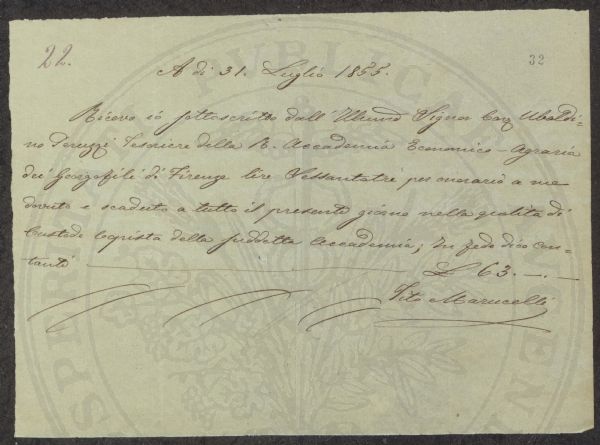 22.
32
A dì 31. Luglio 1855.
Ricevo io sottoscritto dall' Illmo Signor Cav. Ubaldi-
no Peruzzi Tesoriere della R. Accademia Economico-Agraria
dei Georgofili di Firenze lire Sessantatrè per onorario a me
dovuto e scaduto a tutto il presente giorno nella qualità di
Custode Copista della suddetta Accademia; In fede dico con-
tanti £ 63.—.—
Tito Marucelli